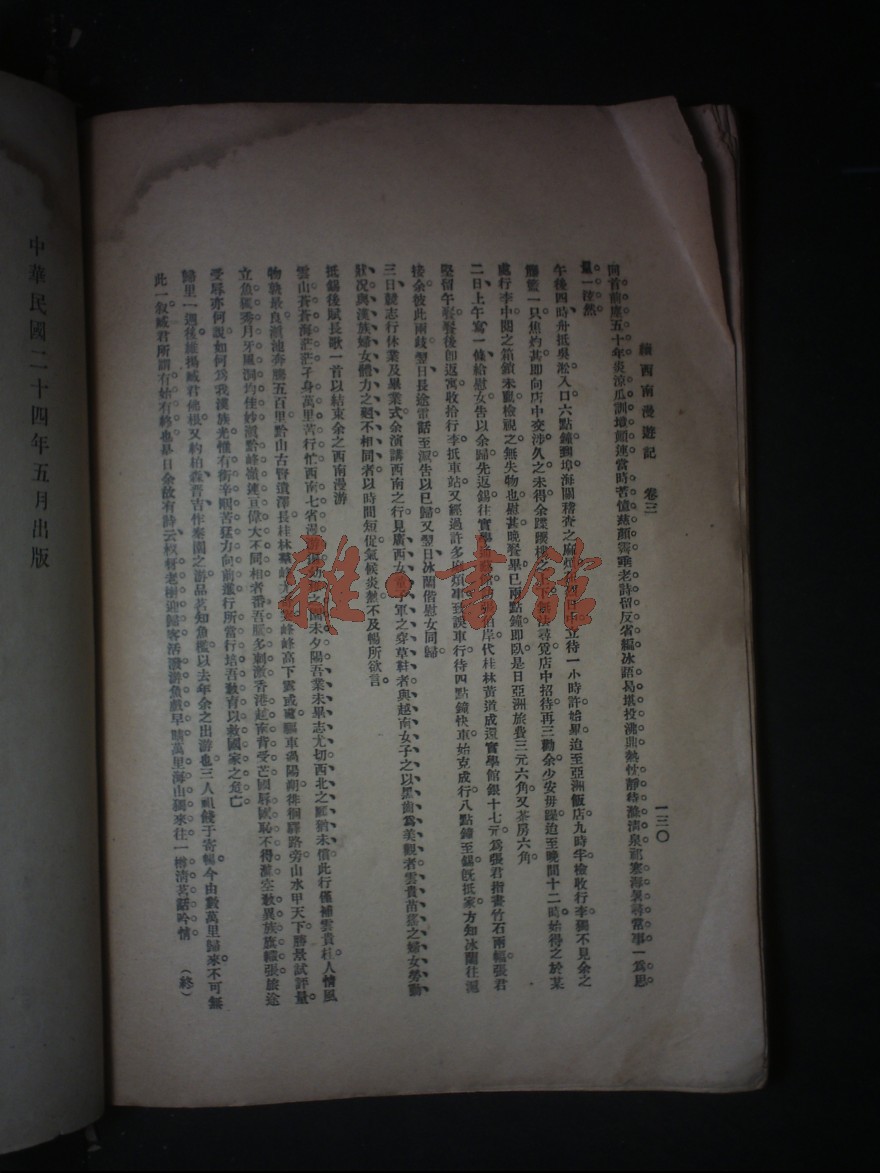 續西南漫遊記　卷三
一三〇
回首前塵五十年炎涼瓜訓墩頭連當時苦憶慈顏霽垂老詩留反省編冰語曷堪投沸鼎熱性靜待滌清泉祁寒海暑尋常事一爲思
量一泫然
午後四時舟抵吳淞入口六點鐘到埠海關稽查之麻煩烈日中立待一小時許始畢迨至亞洲飯店九時半檢收行李獨不見余之
籐籃一只焦灼甚即向店中交涉久之未得余蹀躞樓之上下無法尋覓店中招待再三勸余少安毋躁迨至晚間十二時始得之於某
處行李中閱之箱鎖未亂檢視之無失物也慰甚晚餐畢已兩點鐘即臥是日亞洲旅費三元六角又茶房六角
二日上午寫一條給慰女告以余歸先返錫往實學岸代桂林黃道成還實學館銀十七元爲張君指畫竹石兩幅張君
堅留午餐餐後卽返寓收拾行李抵車站又經過許多麻煩事至誤車行待四點鐘快車始克成行八點鐘至錫旣抵家方知冰蘭往滬
接余彼此兩歧翌日長途電話至滬告以已歸又翌日冰蘭偕慰女同歸
三日競志行休業及畢業式余演講西南之行見廣西女軍之穿草鞋者與越南女子之以黑齒爲美觀者雲貴苗猺之婦女勞動
狀況與漢族婦女體力之迥不相同者以時間短促氣候炎熱不及暢所欲言
抵錫後賦長歌一首以結束余之西南漫游
雲山蒼蒼海茫茫孑身萬里苦行忙西南七省之國未夕陽吾業未畢志尤切西北之願猶未償此行僅補雲貴桂人情風
物孰最良滇池奔騰五百里黔山古賢遺澤長桂林羣峰峰峰高下雲或處驅車渦陽朔徘徊驛路旁山水甲天下勝景試評量
立魚獨秀月牙風洞均佳妙滇黔峰嶺連亘偉大不同相者番吾歷多刺激香港越南背受亡國辱國恥不得灘空欷異族旗幟張旅途
受辱亦何說如何爲我漢族光惟有銜辛服苦猛力向前進行所當行培吾教育以救國家之危亡
歸里一週後雖揭戚君他根又約柏森晋吉作泰園之游品茗知魚檻以去年余之出游也三人祖餞于寄暢今由數萬里歸來不可無
此一敍戚君所謂有始有終也是日余故有詩云杈枒老樹迎歸客活潑游魚戲早塘萬里海山獨來往一樽清茗話吟情
（終）
中華民國二十四年五月出版
雜·書館